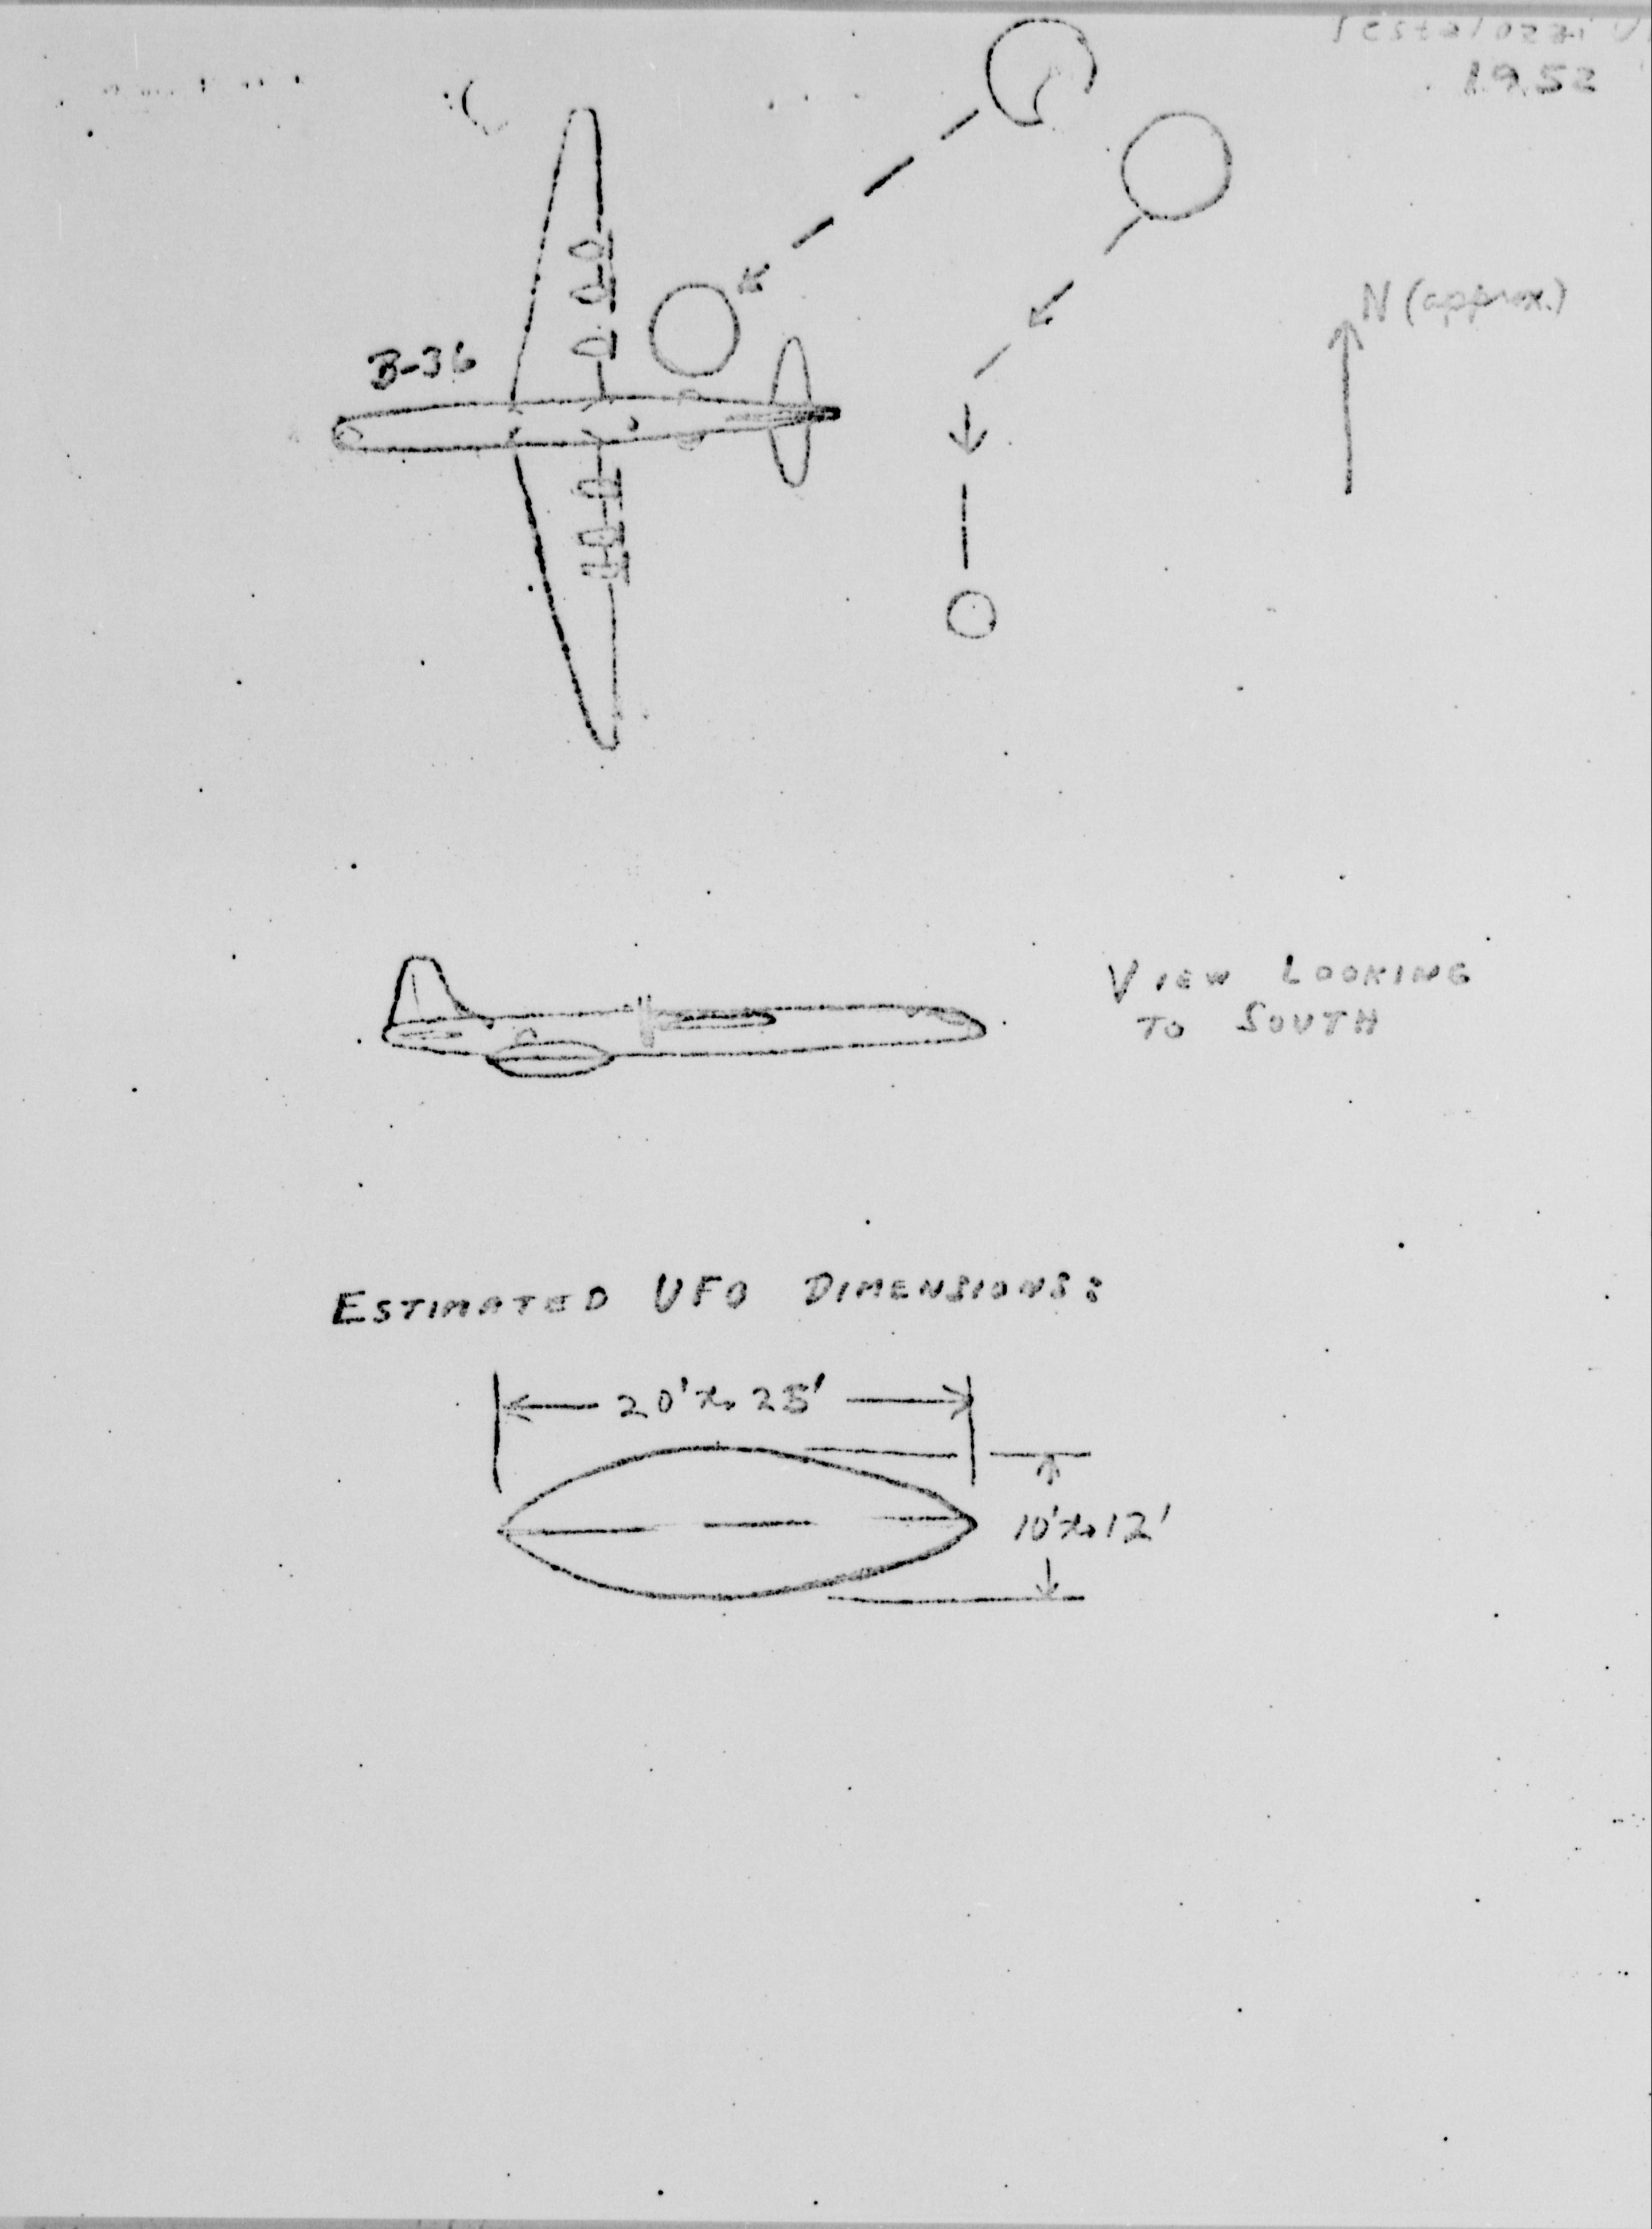 1952
N (approx.)
B-36
VIEW LOOKING
TO SOUTH
ESTIMATED UFO DIMENSIONS:
20' to 25'
10' to 12'